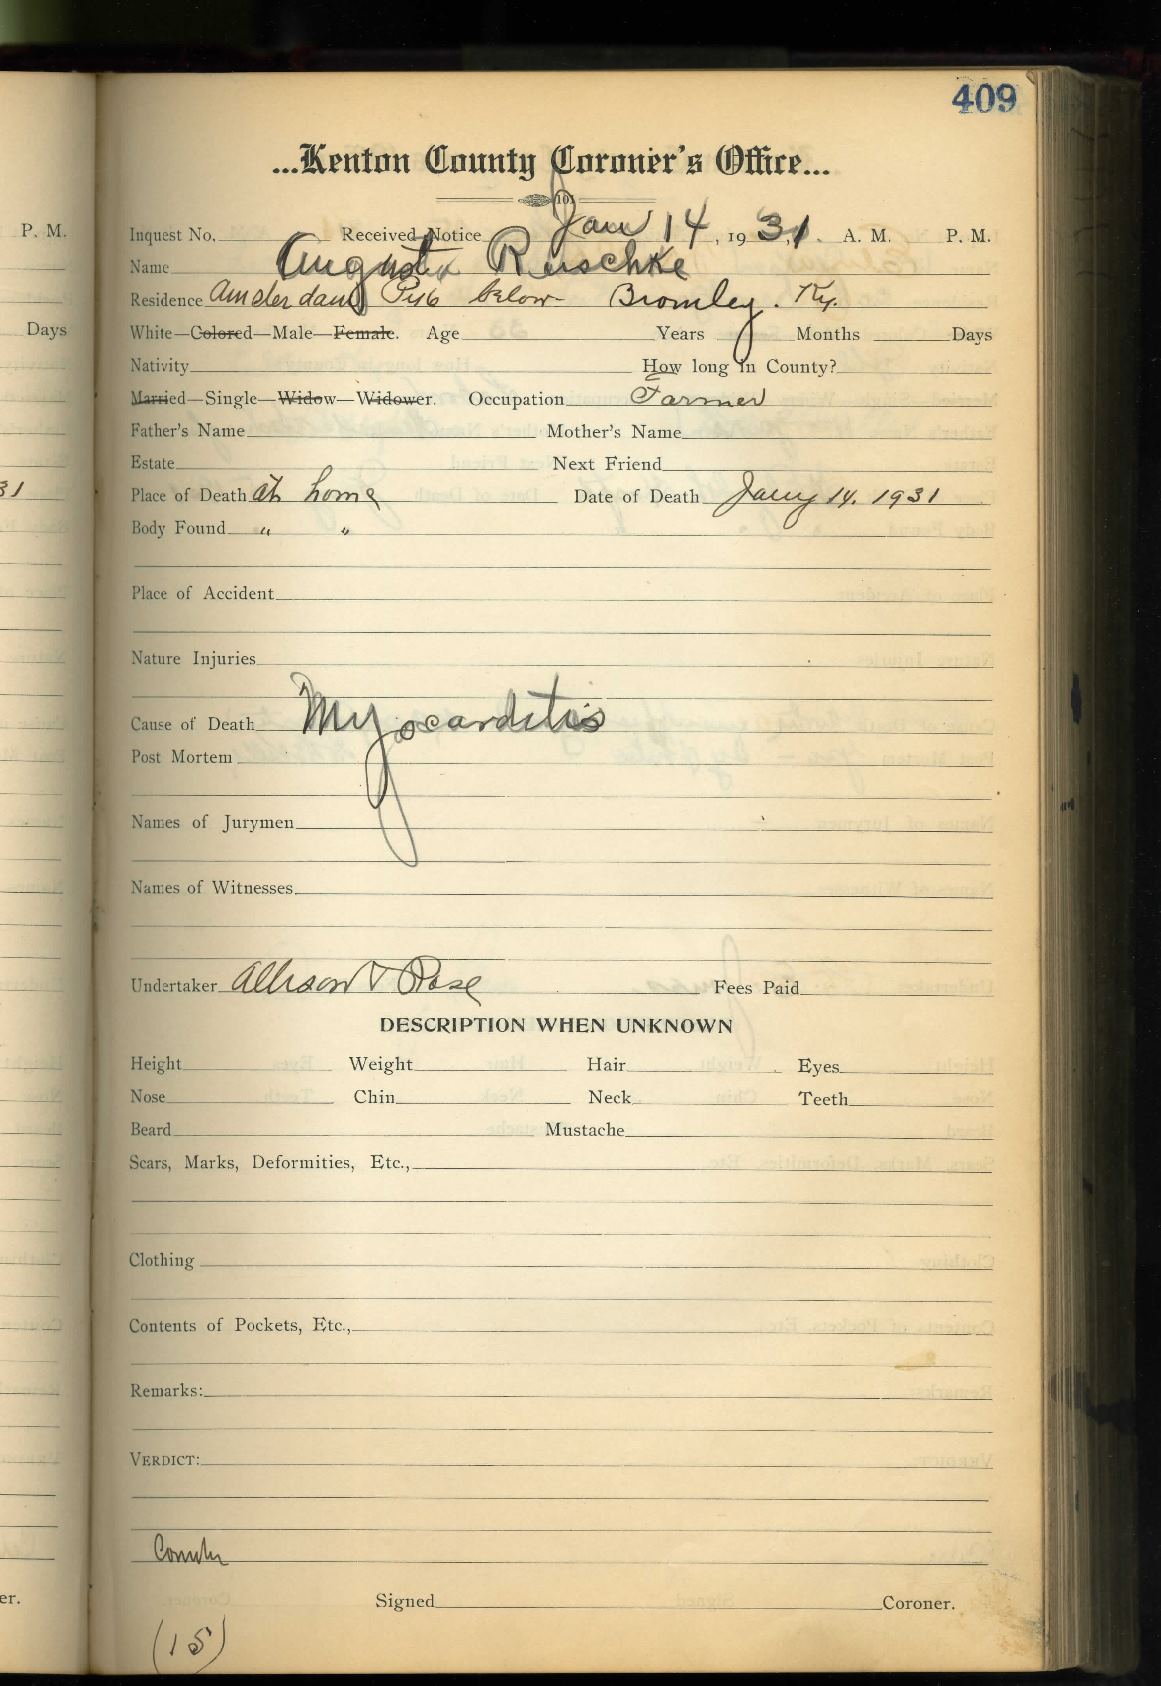 409
...Kenton County Coroner's Office...
101
Inquest No. Received Notice Jan 14, 1931. A. M. P. M.
Name August Ruschke
Residence Amsterdam Pike below Bromley. Ky.
White—Colored—Male—Female. Age Years Months Days
Nativity How long in County?
Married—Single—Widow—Widower. Occupation Farmer
Father's Name Mother's Name
Estate Next Friend
Place of Death at home Date of Death Jany 14. 1931
Body Found " "
Place of Accident
Nature Injuries
Cause of Death Myocarditis
Post Mortem
Names of Jurymen
Names of Witnesses
Undertaker Allison & Rose Fees Paid
DESCRIPTION WHEN UNKNOWN
Height Weight Hair Eyes
Nose Chin Neck Teeth
Beard Mustache
Scars, Marks, Deformities, Etc.,
Clothing
Contents of Pockets, Etc.,
Remarks:
VERDICT:
Signed Coroner.
(15)
P. M.
Days
31
er.